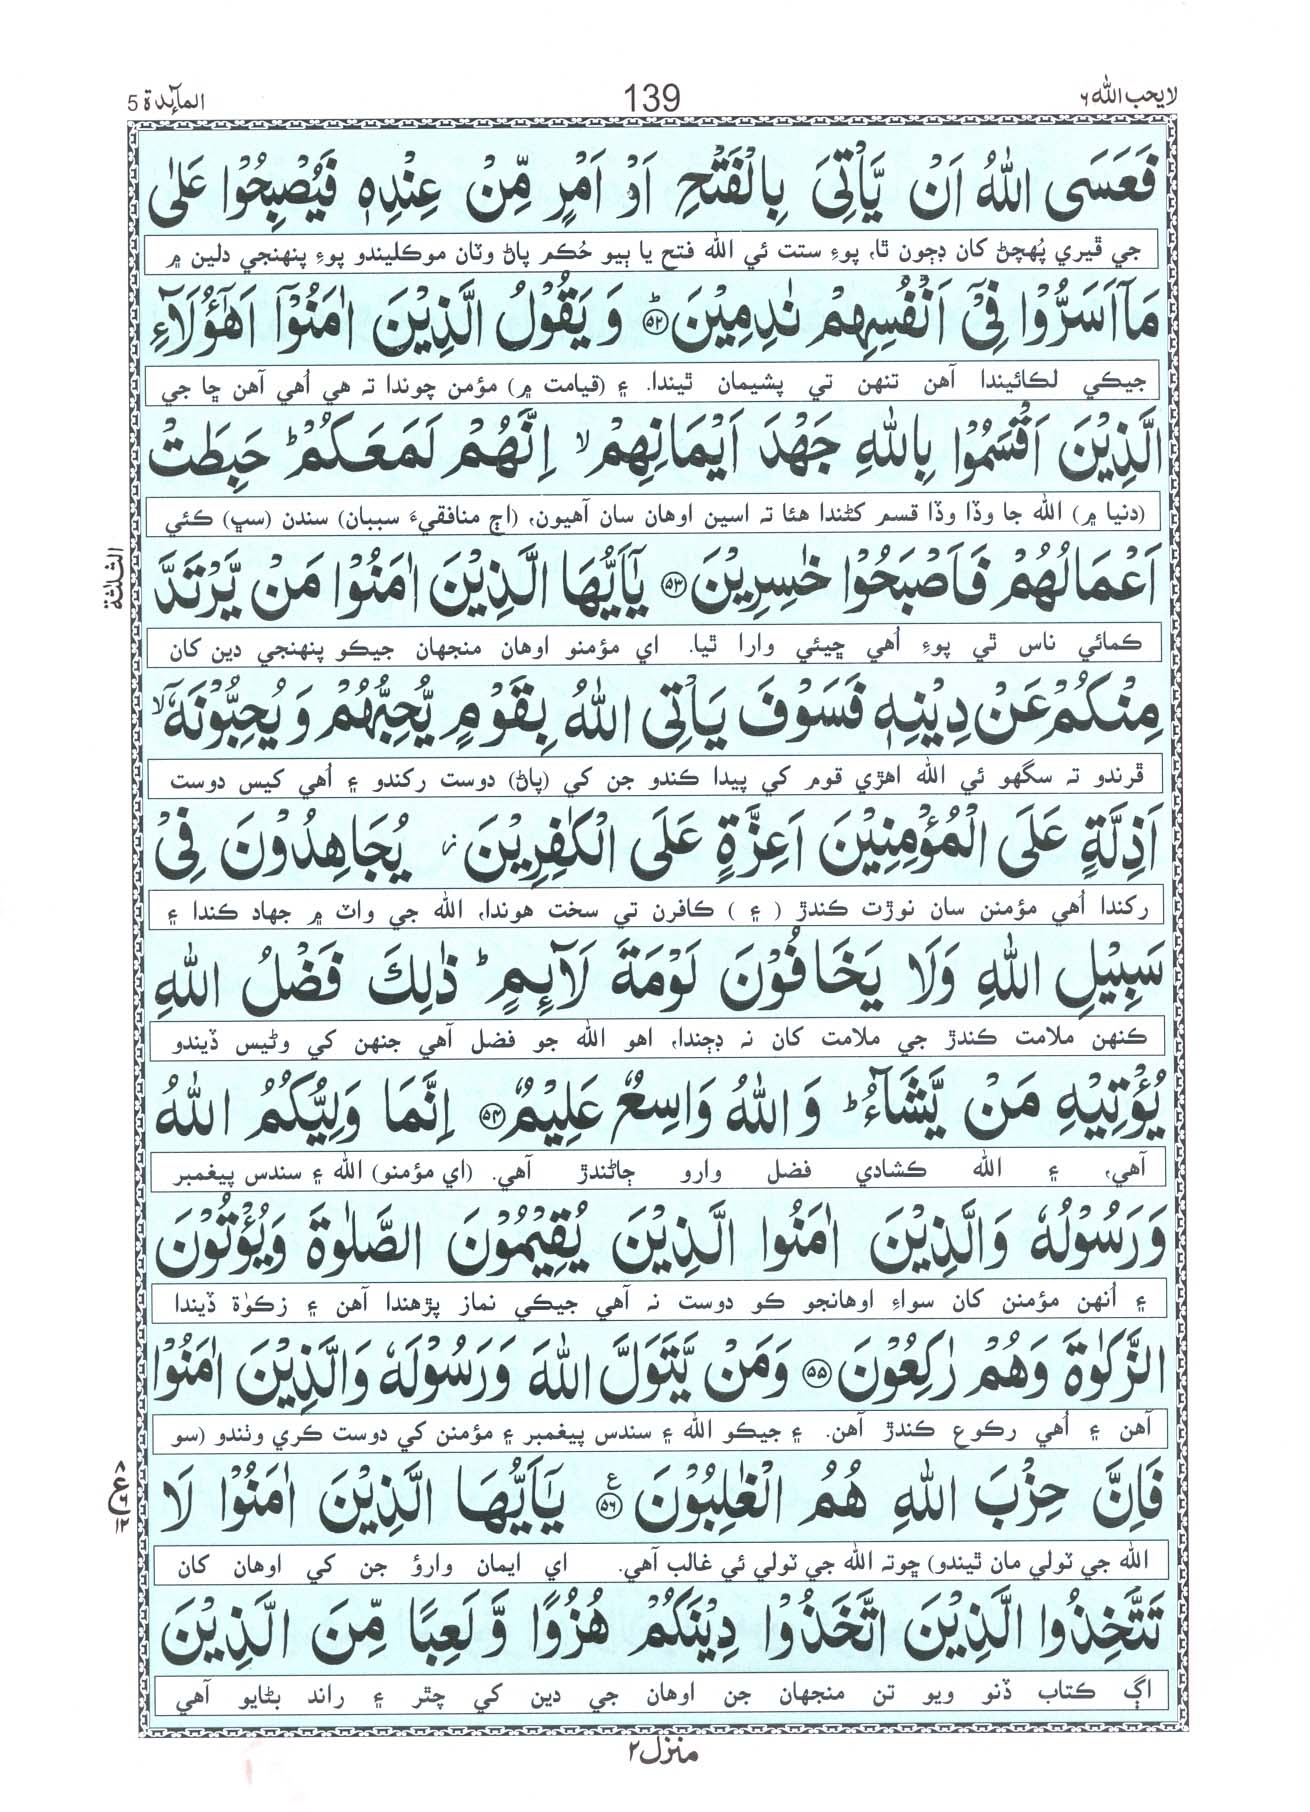 لا يحب الله ٦
139
المآئدة 5
فَعَسَى اللّٰهُ اَنْ يَّاْتِىَ بِالْفَتْحِ اَوْ اَمْرٍ مِّنْ عِنْدِهٖ فَيُصْبِحُوْا عَلٰى
جي ڦيري پُهچڻ کان ڊڄون ٿا، پوءِ ستت ئي الله فتح يا ٻيو حُڪم پاڻ وٽان موڪليندو پوءِ پنهنجي دلين ۾
مَاۤ اَسَرُّوْا فِىْۤ اَنْفُسِهِمْ نٰدِمِيْنَ ؕ﴿۵۲﴾ وَ يَقُوْلُ الَّذِيْنَ اٰمَنُوْۤا اَهٰٓؤُلَآءِ
جيڪي لڪائيندا آهن تنهن تي پشيمان ٿيندا. ۽ (قيامت ۾) مؤمن چوندا تہ هي اُهي آهن ڇا جي
الَّذِيْنَ اَقْسَمُوْا بِاللّٰهِ جَهْدَ اَيْمَانِهِمْ ۙ اِنَّهُمْ لَمَعَكُمْ ؕ حَبِطَتْ
(دنيا ۾) الله جا وڏا وڏا قسم کڻندا هئا تہ اسين اوهان سان آهيون، (اڄ منافقيءَ سببان) سندن (سڀ) ڪئي
اَعْمَالُهُمْ فَاَصْبَحُوْا خٰسِرِيْنَ ﴿۵۳﴾ يٰۤاَيُّهَا الَّذِيْنَ اٰمَنُوْا مَنْ يَّرْتَدَّ
الثلاثة
ڪمائي ناس ٿي پوءِ اُهي ڇيئي وارا ٿيا. اي مؤمنو اوهان منجهان جيڪو پنهنجي دين کان
مِنْكُمْ عَنْ دِيْنِهٖ فَسَوْفَ يَاْتِى اللّٰهُ بِقَوْمٍ يُّحِبُّهُمْ وَ يُحِبُّوْنَهٗۤ ۙ
ڦرندو تہ سگهو ئي الله اهڙي قوم کي پيدا ڪندو جن کي (پاڻ) دوست رکندو ۽ اُهي کيس دوست
اَذِلَّةٍ عَلَى الْمُؤْمِنِيْنَ اَعِزَّةٍ عَلَى الْكٰفِرِيْنَ ؗ يُجَاهِدُوْنَ فِىْ
رکندا اُهي مؤمنن سان نوڙت ڪندڙ ( ۽ ) ڪافرن تي سخت هوندا، الله جي واٽ ۾ جهاد ڪندا ۽
سَبِيْلِ اللّٰهِ وَلَا يَخَافُوْنَ لَوْمَةَ لَآئِمٍ ؕ ذٰلِكَ فَضْلُ اللّٰهِ
ڪنهن ملامت ڪندڙ جي ملامت کان نہ ڊڄندا، اهو الله جو فضل آهي جنهن کي وڻيس ڏيندو
يُؤْتِيْهِ مَنْ يَّشَآءُ ؕ وَ اللّٰهُ وَاسِعٌ عَلِيْمٌ ﴿۵۴﴾ اِنَّمَا وَلِيُّكُمُ اللّٰهُ
آهي، ۽ الله ڪشادي فضل وارو ڄاڻندڙ آهي. (اي مؤمنو) الله ۽ سندس پيغمبر
وَ رَسُوْلُهٗ وَ الَّذِيْنَ اٰمَنُوا الَّذِيْنَ يُقِيْمُوْنَ الصَّلٰوةَ وَيُؤْتُوْنَ
۽ اُنهن مؤمنن کان سواءِ اوهانجو ڪو دوست نہ آهي جيڪي نماز پڙهندا آهن ۽ زڪوٰة ڏيندا
الزَّكٰوةَ وَهُمْ رٰكِعُوْنَ ﴿۵۵﴾ وَمَنْ يَّتَوَلَّ اللّٰهَ وَ رَسُوْلَهٗ وَ الَّذِيْنَ اٰمَنُوْا
آهن ۽ اُهي رڪوع ڪندڙ آهن. ۽ جيڪو الله ۽ سندس پيغمبر ۽ مؤمنن کي دوست ڪري وٺندو (سو
فَاِنَّ حِزْبَ اللّٰهِ هُمُ الْغٰلِبُوْنَ ﴿۵۶﴾ ع يٰۤاَيُّهَا الَّذِيْنَ اٰمَنُوْا لَا
۸ ع ٦ ۱۲
الله جي ٽولي مان ٿيندو) ڇوتہ الله جي ٽولي ئي غالب آهي. اي ايمان وارؤ جن کي اوهان کان
تَتَّخِذُوا الَّذِيْنَ اتَّخَذُوْا دِيْنَكُمْ هُزُوًا وَّ لَعِبًا مِّنَ الَّذِيْنَ
اڳ ڪتاب ڏنو ويو تن منجهان جن اوهان جي دين کي چٿر ۽ راند بڻايو آهي
منزل ۲